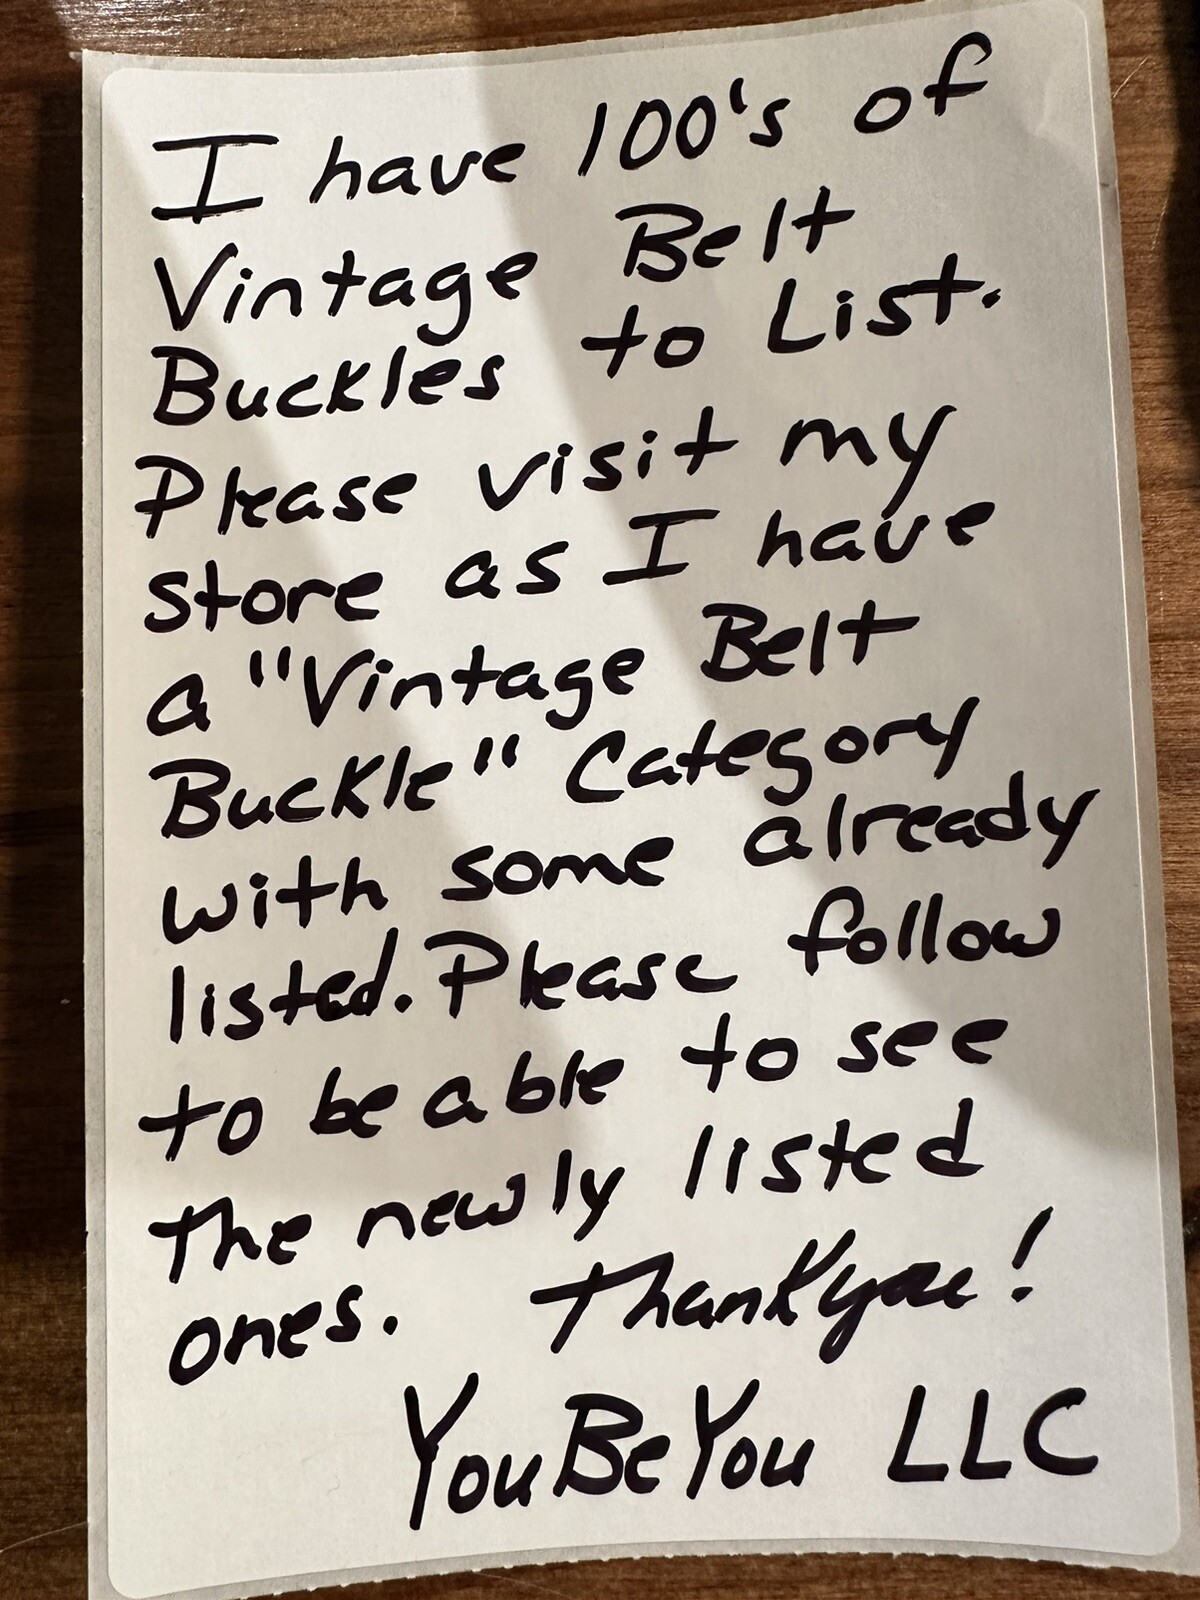 I have 100's of
Vintage Belt
Buckles to List.
Please visit my
store as I have
a "Vintage Belt
Buckle" Category
with some already
listed. Please follow
to be able to see
the newly listed
ones. Thank you!
YouBeYou LLC